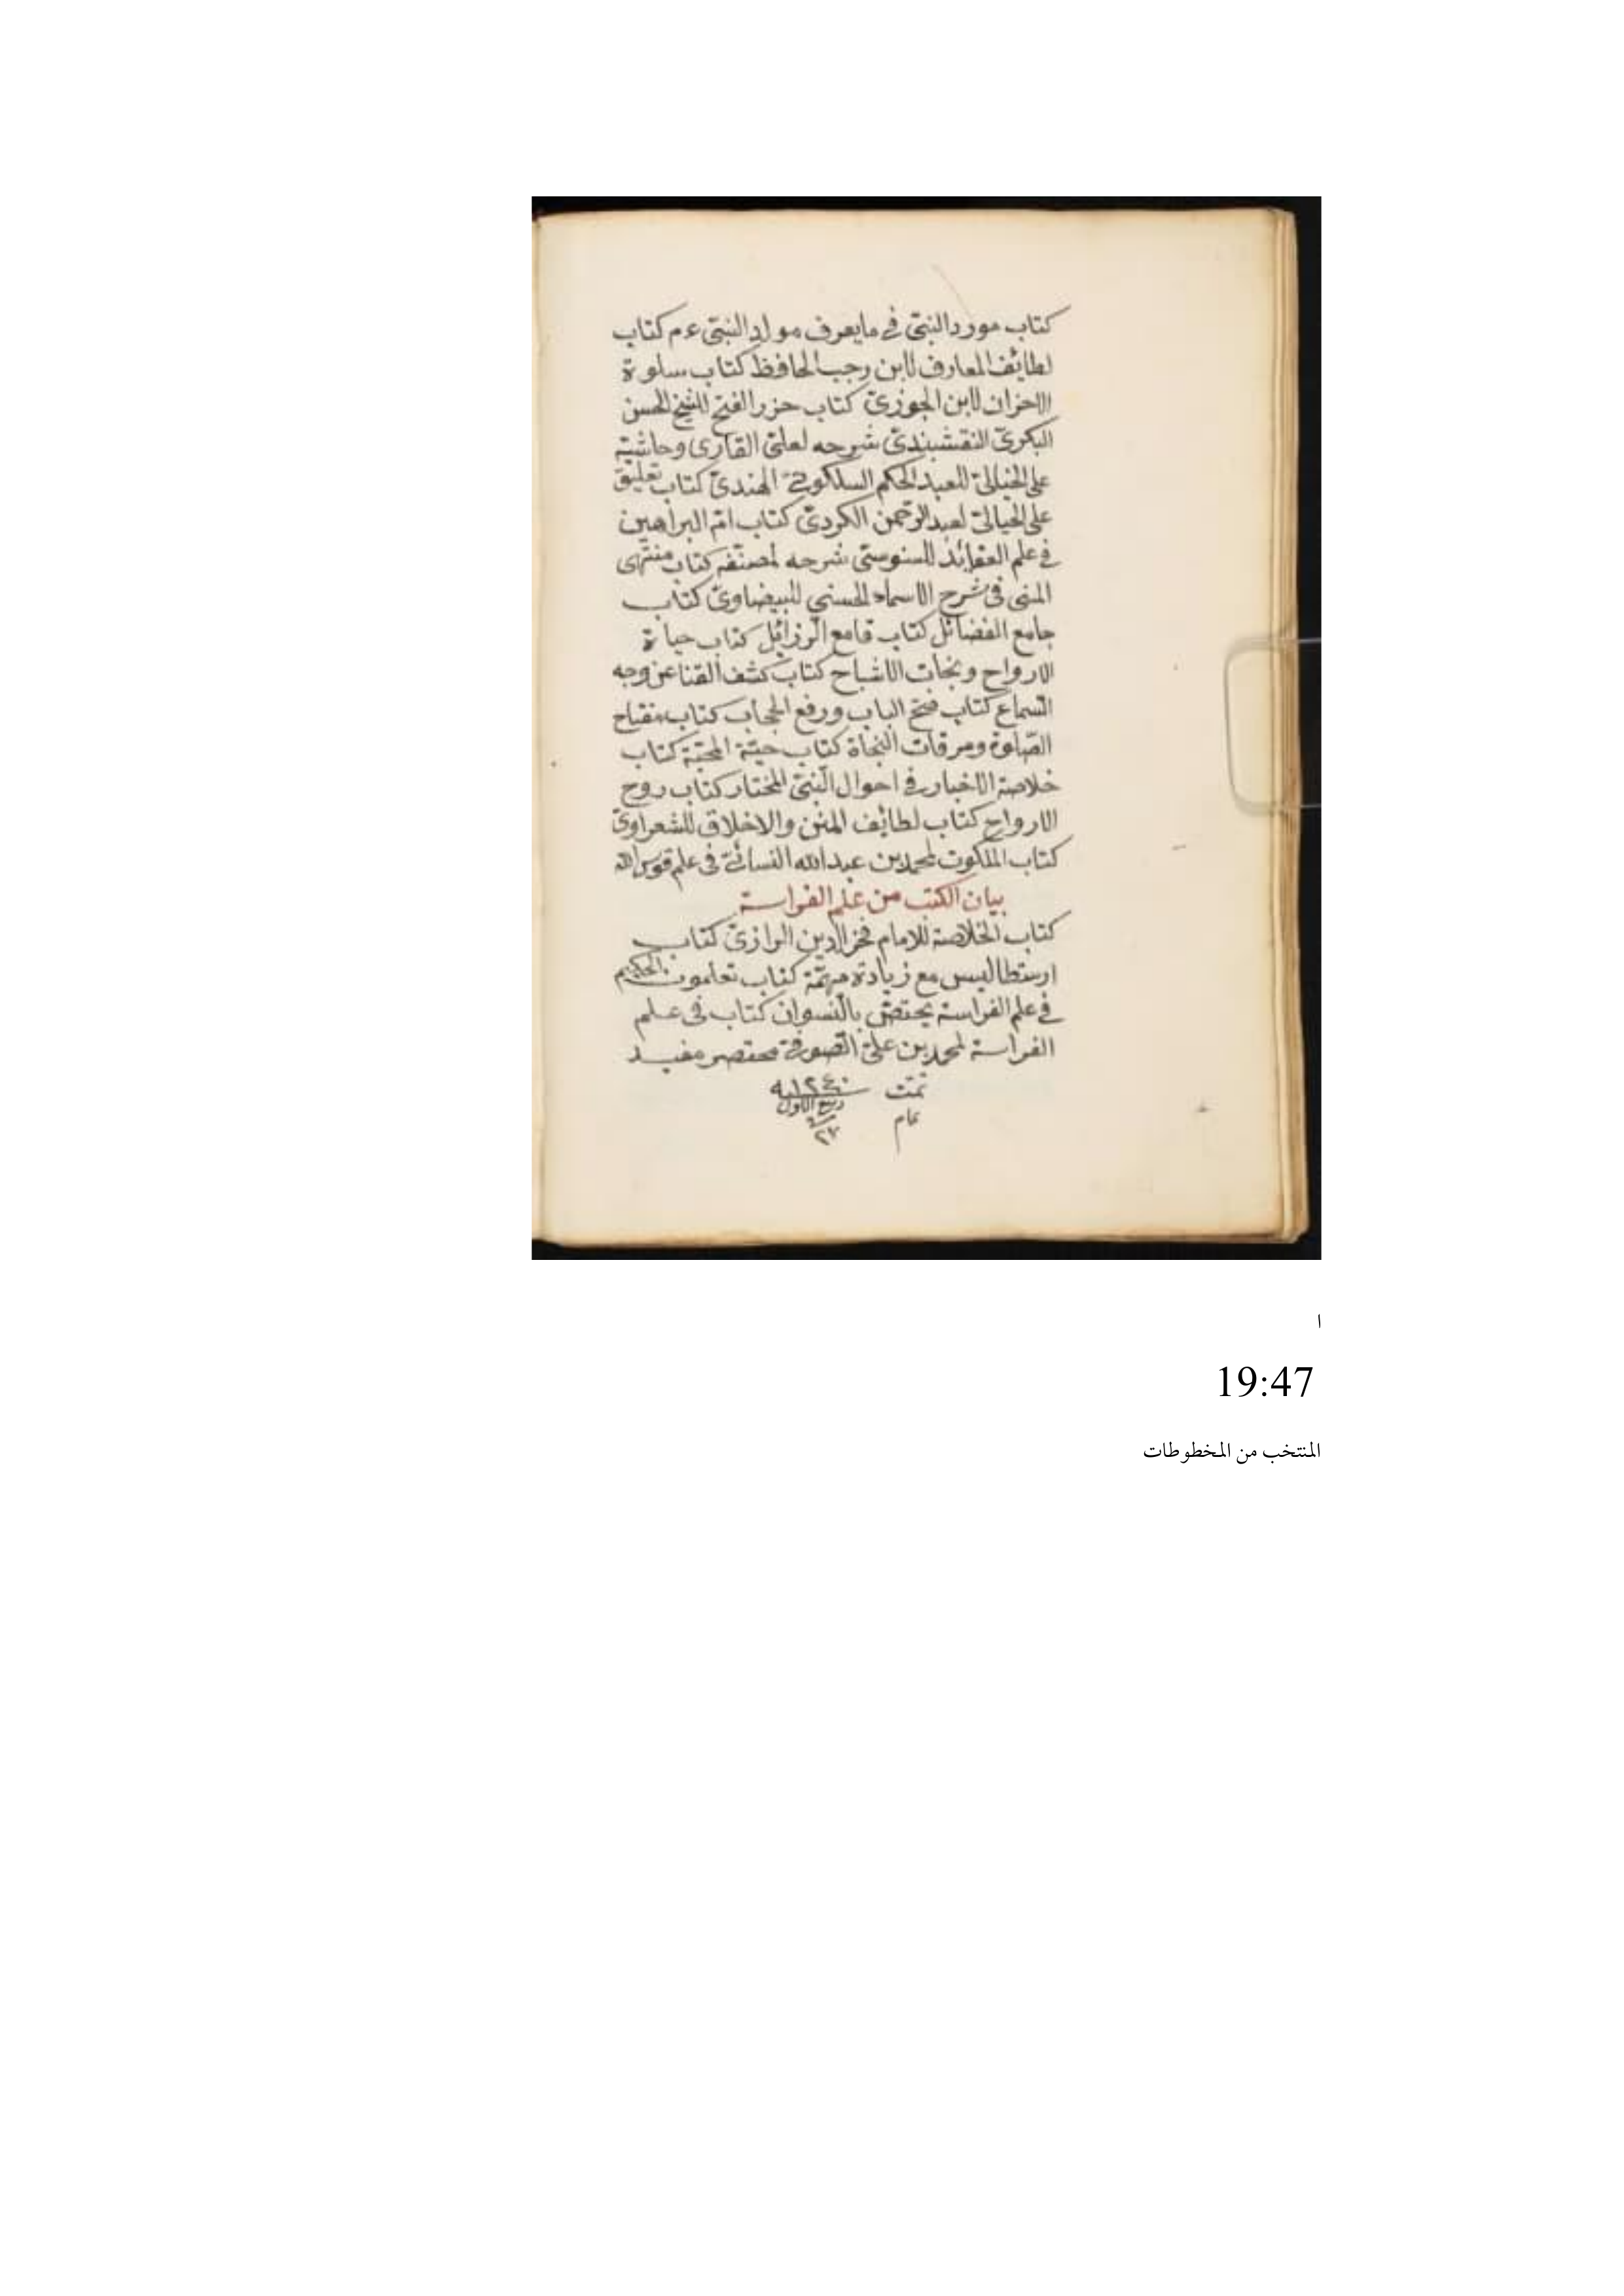 كتاب مورد النبيّ في ما يعرف مولد النبيّ ع م كتاب
لطائف المعارف لابن رجب الحافظ كتاب سلوة
الاحزان لابن الجوزيّ كتاب حزر الفتح للشيخ الحسن
البكريّ النقشبنديّ شرحه لعليّ القارى وحاشية
على الخياليّ للعبد الحكم السلكوتيّ الهنديّ كتاب تعليق
على الخياليّ لعبد الرّحمن الكرديّ كتاب امّ البراهين
في علم العقائد للسنوسيّ شرحه لمصنّفه كتاب منتهى
المنى في شرح الاسماء الحسني للبيضاويّ كتاب
جامع الفضائل كتاب قامع الرزائل كتاب حياة
الارواح ونجات الاشباح كتاب كشف القناعن وجه
السّماع كتاب فتح الباب ورفع الحجاب كتاب مفتاح
الصّلوة ومرقات النجاة كتاب المحبّة كتاب
خلاصة الاخبار في احوال النّبيّ المختار كتاب روح
الارواح كتاب لطائف المنن والاخلاق للشعراويّ
كتاب الملكوت لمحمد بن عبد الله النسائيّ في علم قوس الله
بيان الكتب من علم الفراسة
كتاب الخلاصة للامام فخر الدين الرازيّ كتاب
ارسطاليس مع زيادة مهمّة كتاب الحكيم
في علم الفراسة يختصّ بالنّسوان كتاب في علم
الفراسة لمحمد بن عليّ الصّوفيّ مختصر مفيد
تمّت سنة ١٢٤٠
تمام ربيع الاول
ا
19:47
المنتخب من المخطوطات